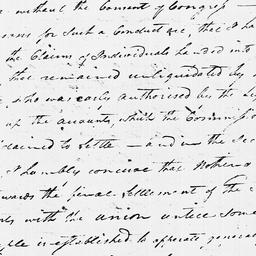 without the Consent of Congress —
for such a Conduct are, that I ha
the Claims of Individuals handed into
that remained unliquidated by
who was early authorised by the
up the accounts, which the Commiss
claimed to settle — and in the
I humbly conceive that nothing
towards the final settlement of the
with the union untill some
is established to apreciate general